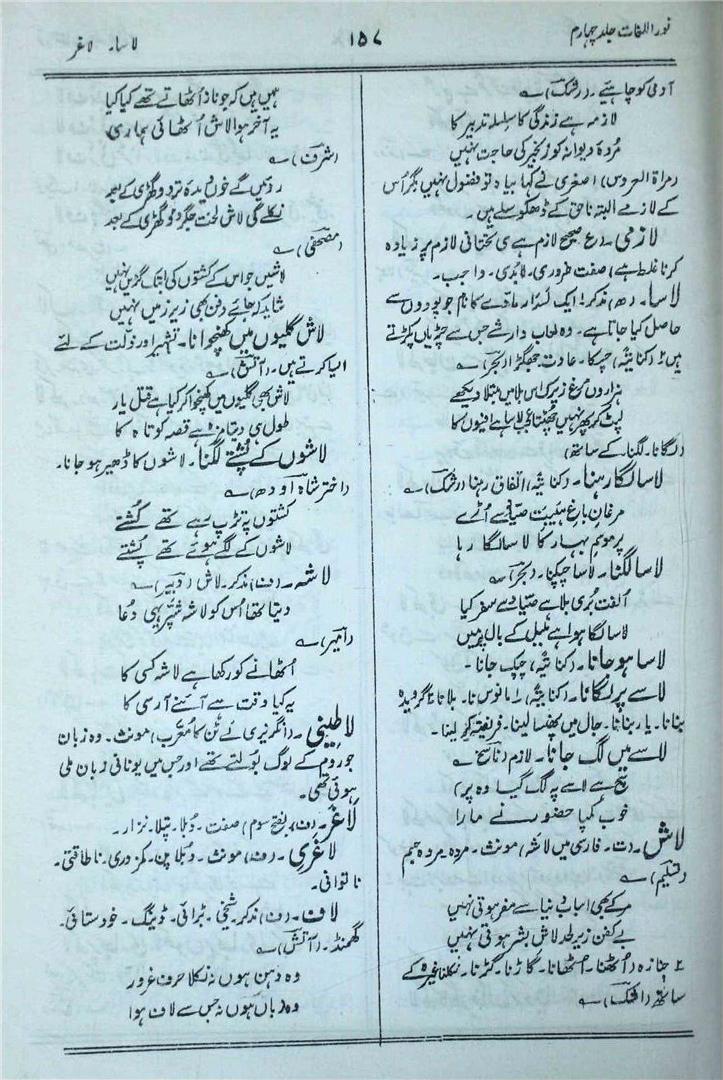 نور اللغات جلد چہارم
۱۵۷
لاسا۔ لاغر
آدمی کو چاہیے۔ (رشک) ؎
لازمہ ہے زندگی کا سلسلہ تدبیر کا
مردۂ دیوانہ کو زنجیر کی حاجت نہیں
(مراۃ العروس) اصغری نے کہا بیاہ تو فضول نہیں مگر اس
کے لازمے البتہ ناحق کے ڈھکوسلے ہیں۔
لازمی۔ (ع صحیح لازم ہے ی تحتانی لازم پر زیادہ
کرنا غلط ہے) صفت ضروری۔ لابدی۔ واجب۔
لاسا۔ (ھ) مذکر ۱ ایک لسدار مادے کا نام جو پودوں سے
حاصل کیا جاتا ہے۔ وہ لعاب دار شے جس سے چڑیاں پکڑتے
ہیں ۲ (کنایۃً) چسکا۔ عادت۔ جھگڑا (بحر) ؎
ہزاروں مرغ زیرک اس بلا میں مبتلا دیکھے
لپٹ کر پھر نہیں چھٹتا عجب لاسا ہے افیوں کا
(لگانا۔ لگنا کے ساتھ)
لاسا لگا رہنا۔ (کنایۃً) اتفاق رہنا (رشک) ؎
مرغان باغ ہیبت صیاد سے اڑے
پر موسم بہار کا لاسا لگا رہا
لاسا لگنا۔ لاسا چپکنا۔ (بحر) ؎
الفت بُری بلا ہے صیاد سے سفر کیا
لاسا لگا ہوا ہے بلبل کے بال و پر میں
لاسا ہو جانا۔ (کنایۃً) چپک جانا۔
لاسے پر لگانا۔ (کنایۃً) ۱ مانوس نا۔ ہلانا ۲ گرویدہ
بنانا۔ یار بنانا۔ جال میں پھنسا لینا۔ فریفتہ کر لینا۔
لاسے میں لگ جانا۔ لازم (ناسخ) ؎
سے لاسے پہ لگ گیا وہ
خوب کمپا حضور نے مارا
لاش۔ (ت۔ فارسی میں لاشہ) مونث۔ مردہ ۱ مردہ جسم
(تسلیم) ؎
مر کے بھی اسباب دنیا سے مفر ہوتی نہیں
بے کفن زیر لحد لاش بشر ہوتی نہیں
۲ جنازہ (اٹھنا۔ اٹھانا۔ گاڑنا۔ گڑنا۔ نکلنا وغیرہ کے
ساتھ) (اشک) ؎
ہمیں ہیں کہ جو ناز اٹھاتے تھے کیا کیا
یہ آخر ہوا لاش اٹھائی ہماری
(شرف) ؎
روئیں گے خوں دیدۂ تر دو گھڑی کے بعد
نکلے گی لاش لخت جگر دو گھڑی کے بعد
(مصحفی) ؎
لاشیں جو اس کے کشتوں کی ابتک گڑیں نہیں
شاید کہ جائے دفن بھی زیر زمیں نہیں
لاش گلیوں میں کھنچوانا۔ تشہیر اور ذلت کے لئے
ایسا کرتے ہیں۔ (آتش) ؎
لاش بھی گلیوں میں کھنچوا کر کیا ہے قتل یار
طول ہی دیتا مزہ ہے قصۂ کوتاہ کا
لاشوں کے پشتے لگنا۔ لاشوں کا ڈھیر ہو جانا۔
(اختر شاہ اودھ) ؎
کشتوں پہ تڑپ رہے تھے کشتے
لاشوں کے لگے ہوئے تھے پشتے
لاشہ۔ (ف) مذکر۔ لاش (دبیر) ؎
دیتا تھا اس کو لاشۂ شبیر بھی دعا
(امیر) ؎
اٹھانے کو رکھا ہے لاشہ کسی کا
یہ کیا وقت ہے آئنے آرسی کا
لاطینی۔ (انگریزی لے ٹن کا معرب) مونث۔ وہ زبان
جو روم کے لوگ بولتے تھے اور جس میں یونانی زبان ملی
ہوئی تھی۔
لاغر۔ (ف) بفتح سوم) صفت۔ دُبلا۔ پتلا۔ نزار۔
لاغری۔ (ف) مونث۔ دبلا پن۔ کمزوری۔ ناطاقتی۔
ناتوانی۔
لاف۔ (ف) مذکر۔ شیخی۔ بڑائی۔ ڈینگ۔ خودستائی۔
گھمنڈ۔ (آتش) ؎
وہ دہن ہوں نہ نکلا حرف غرور
وہ زباں ہوں نہ جس سے لاف ہوا